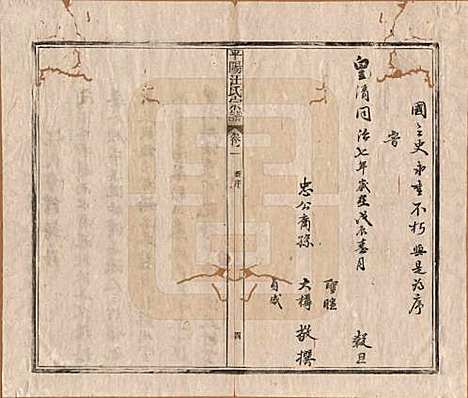 國之史永垂不朽與是为序
旹
皇清同治七年歲在戊辰春月 穀旦
忠公裔孫
聖瞻
大樽
自成
敬撰
平陽汪氏宗譜 卷一 序 四